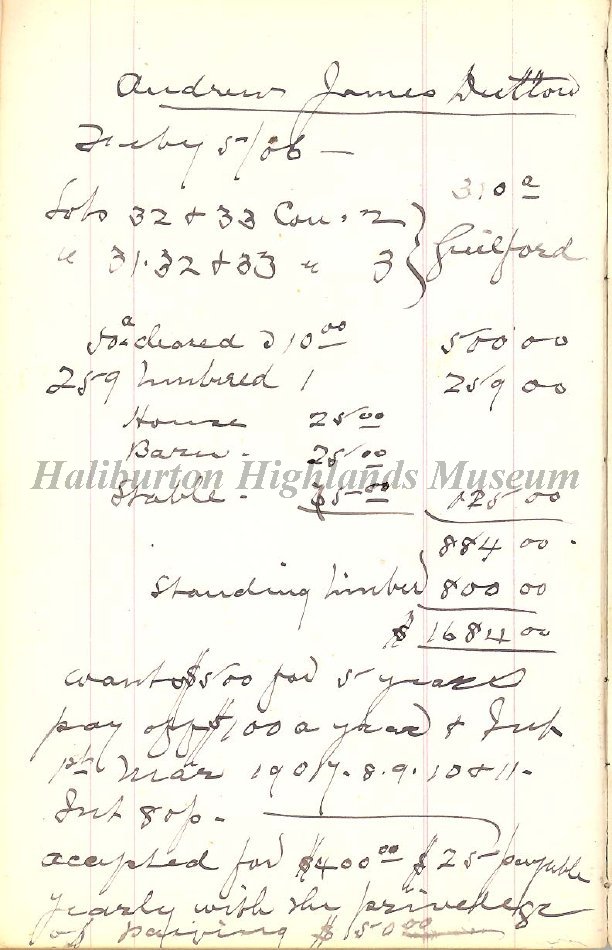 Andrew James Dutton
Feby 5/06 —
310 a
Lots 32 & 33 Con. 2
" 31.32 & 33 " 3 } Guilford
50 a cleared @ 10 00 500 00
259 timbered 1 259 00
House 25 00
Barn - 25 00
Haliburton Highlands Museum
Stable - 00 125 00
884 00
Standing timber 800 00
$ 1684 00
wants $500 for 5 years
pay off $100 a year & Int
1st Mar 1907. 8. 9. 10 & 11 -
Int 8 op -
accepted for $400 00 $25 payable
yearly with the privelege
of paiving $ 50 00